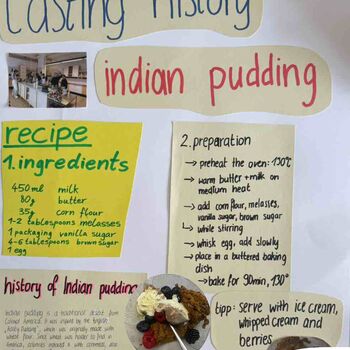 tasting history
indian pudding
recipe
1. ingredients
450ml milk
80g butter
35g corn flour
1-2 tablespoons melasses
1 packaging vanilla sugar
4-6 tablespoons brown sugar
1 egg
2. preparation
→ preheat the oven: 130°C
→ warm butter + milk on
medium heat
→ add corn flour, melasses,
vanilla sugar, brown sugar
↳ while stirring
→ whisk egg, add slowly
→ place in a buttered baking
dish
→ bake for 90min, 130°
history of Indian pudding
Indian pudding is a traditional desert from
Colonial America. It was inspired by the English
"Hasty Pudding", which was originally made with
wheat flour. Since wheat was harder to find in
America, colonists replaced it with cornmeal, also
tipp: serve with ice cream,
whipped cream and
berries